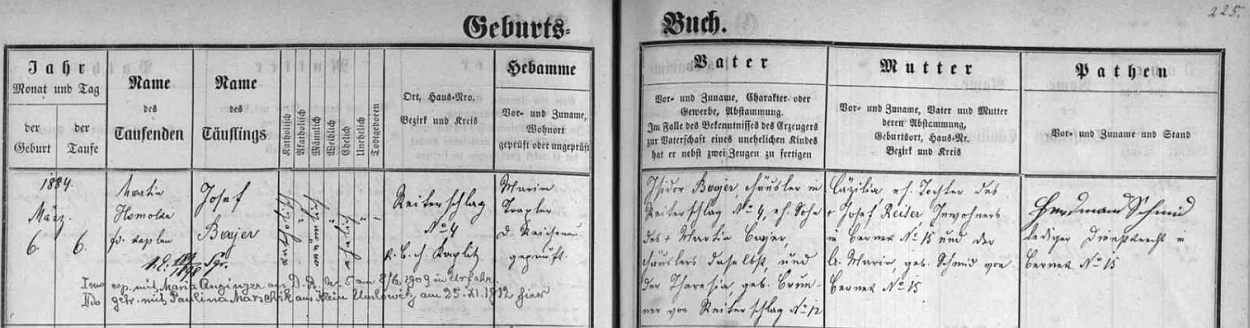 Geburts-
Buch.
225.
Jahr
Monat und Tag
der
Geburt
der
Taufe
Name
des
Taufenden
Name
des
Täuflings
Katholisch
Akatholisch
Männlich
Weiblich
Ehelich
Unehelich
Todtgeboren
Ort, Haus-Nro.
Bezirk und Kreis
Hebamme
Vor- und Zuname,
Wohnort
geprüft oder ungeprüft
Vater
Vor- und Zuname, Charakter oder
Gewerbe, Abstammung.
Im Falle des Bekenntnisses des Erzeugers
zur Vaterschaft eines unehelichen Kindes
hat er nebst zwei Zeugen zu fertigen
Mutter
Vor- und Zuname, Vater und Mutter
deren Abstammung,
Geburtsort, Haus-Nr.
Bezirk und Kreis
Pathen
Vor- und Zuname und Stand
1884.
März
6. 6.
Martin
Homolka
Kaplan
Josef
Bayer
Reiterschlag
No 4
Kaplitz
Maria
Trapler
Reichenau
geprüft
Isidor Bayer Häusler in
Reiterschlag No 4, eh. Sohn
des † Martin Bayer,
Häuslers daselbst, und
der Theresia geb. Brun-
ner von Reiterschlag No 12
Cäzilia eh. Tochter des
† Josef Reiter Inwohners
in Bernek No 15 und der
Maria, geb. Schmid von
Bernek No 15
Ferdinand Schmid
lediger Dienstknecht in
Bernek No 15
Imo cop. mit Maria Anzinger aus D. R. No 5 am 8/6. 1909 in Urfahr
IIdo getr. mit Paulina Marschik aus Klein Umlowitz am 25. XI. 1912 hier